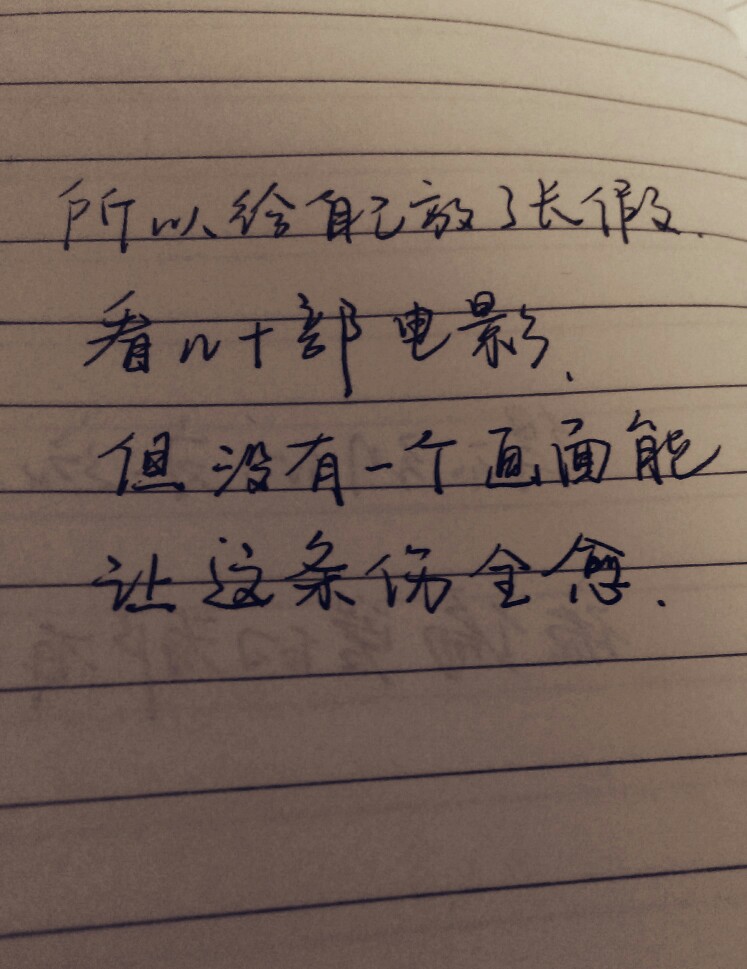 所以给自己放了长假.
看几十部电影.
但没有一个画面能
让这条伤全愈.